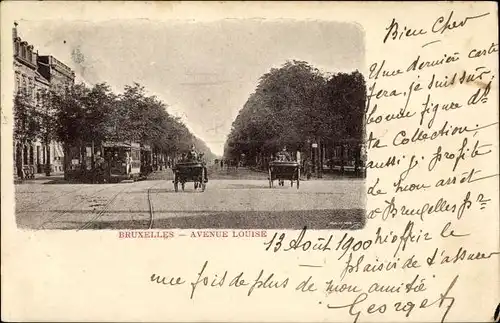 Bien Cher
Une dernière carte
fera, je suis sûr
bonne figure ds
ta Collection.
aussi je profite
de mon arrêt
à Bruxelles pr
BRUXELLES – AVENUE LOUISE
13 Août 1900
le
plaisir de t'assurer
une fois de plus de mon amitié
Georges